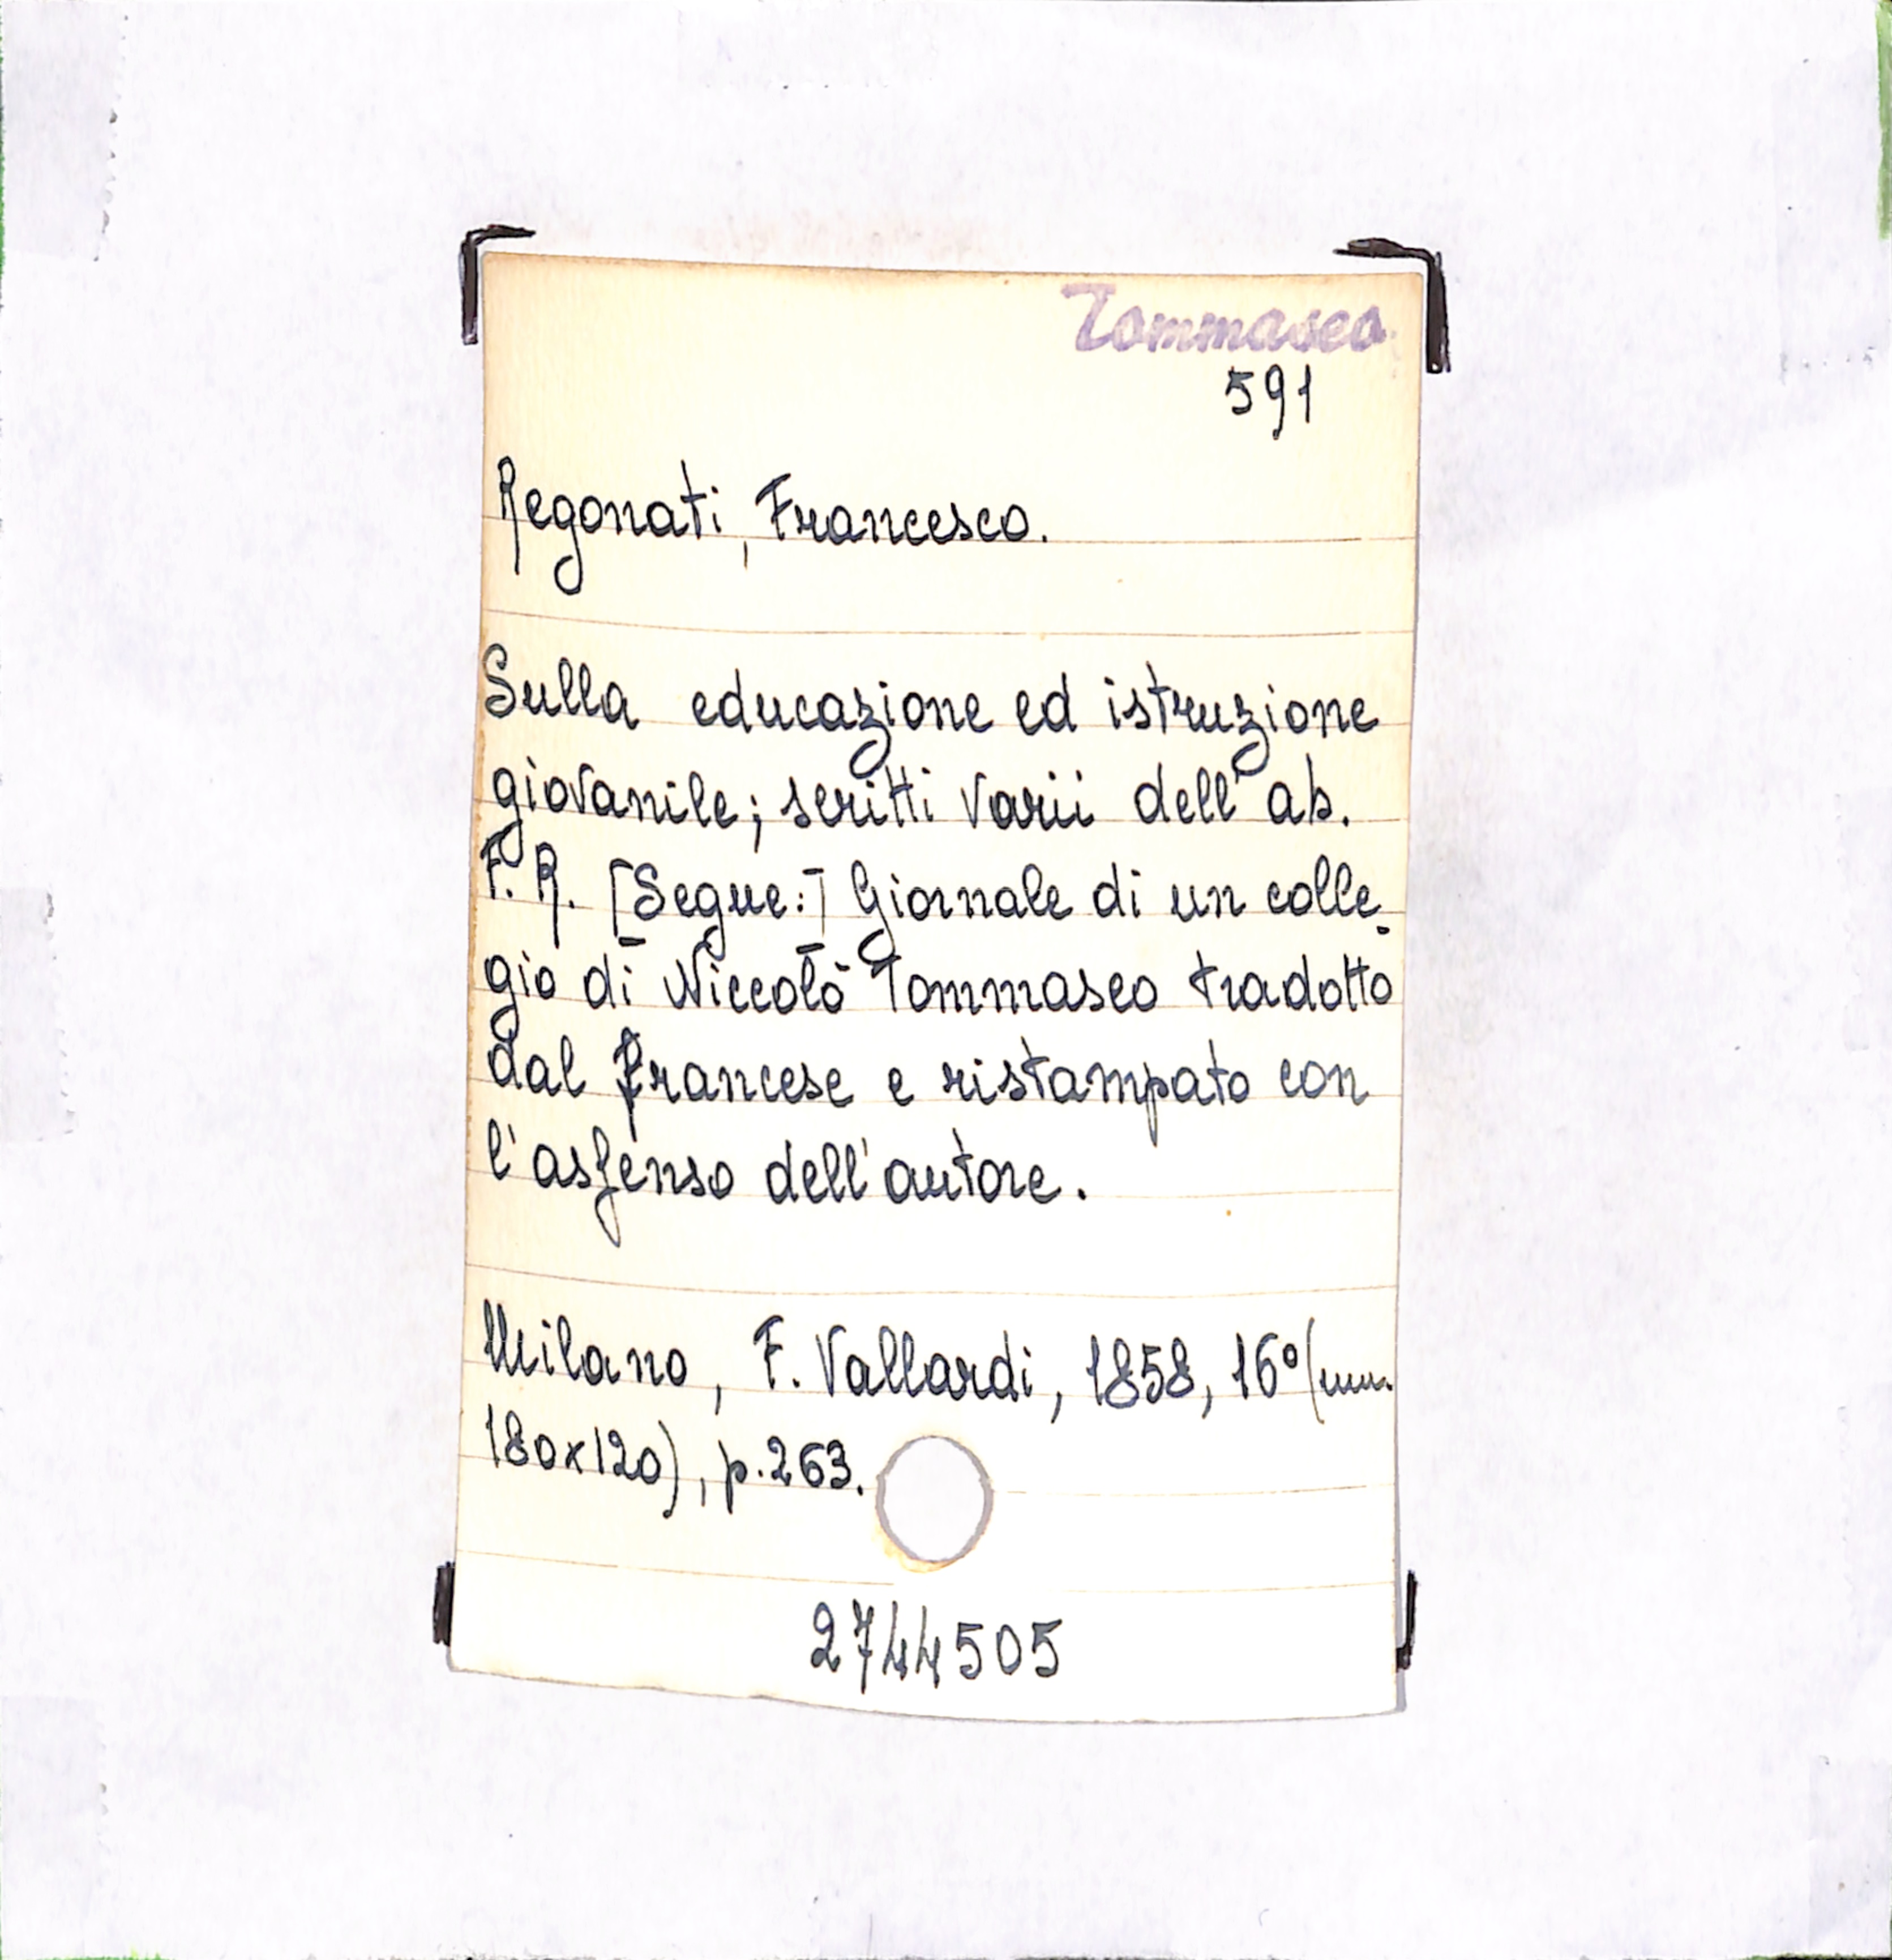 Tommaseo
591
Regonati, Francesco.
Sulla educazione ed istruzione
giovanile; scritti varii dell'ab.
F. R. [Segue:] Giornale di un colle-
gio di Niccolò Tommaseo tradotto
dal francese e ristampato con
l'asſenso dell'autore.
Milano, F. Vallardi, 1858, 16° (mm.
180x120), p. 263.
2744505